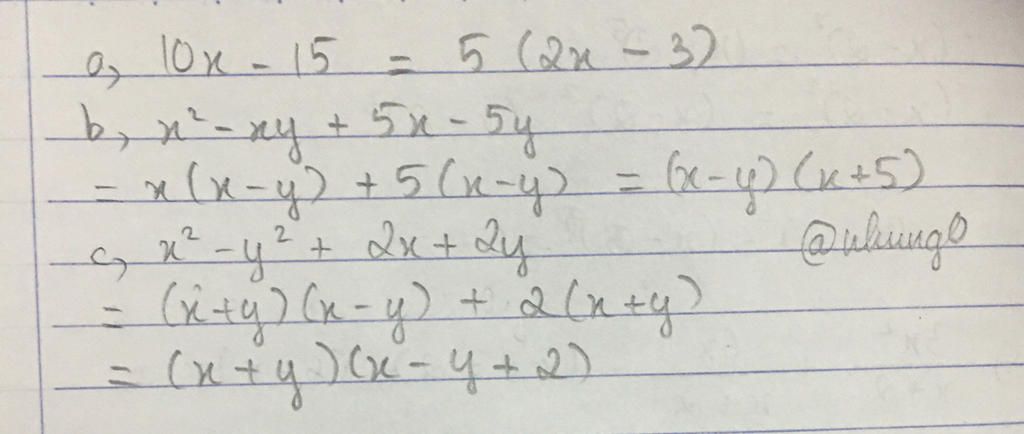 a, 10x - 15 = 5 (2x - 3)
b, x² - xy + 5x - 5y
= x(x-y) + 5(x-y) = (x-y)(x+5)
c, x² - y² + 2x + 2y
= (x+y)(x-y) + 2(x+y)
= (x+y)(x-y+2)